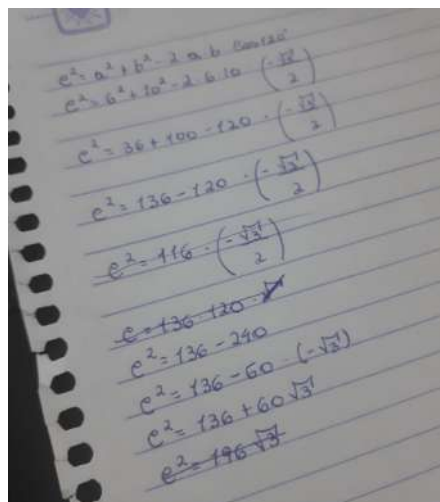 c² = a² + b² - 2 a b cos 120°
c² = 6² + 10² - 2 · 6 · 10 (-√3/2)
c² = 36 + 100 - 120 · (-√3/2)
c² = 136 - 120 · (-√3/2)
c² = 116 · (-√3/2)
c = 136 120 · √
c² = 136 - 240
c² = 136 - 60 · (-√3)
c² = 136 + 60√3
c² = 196√3